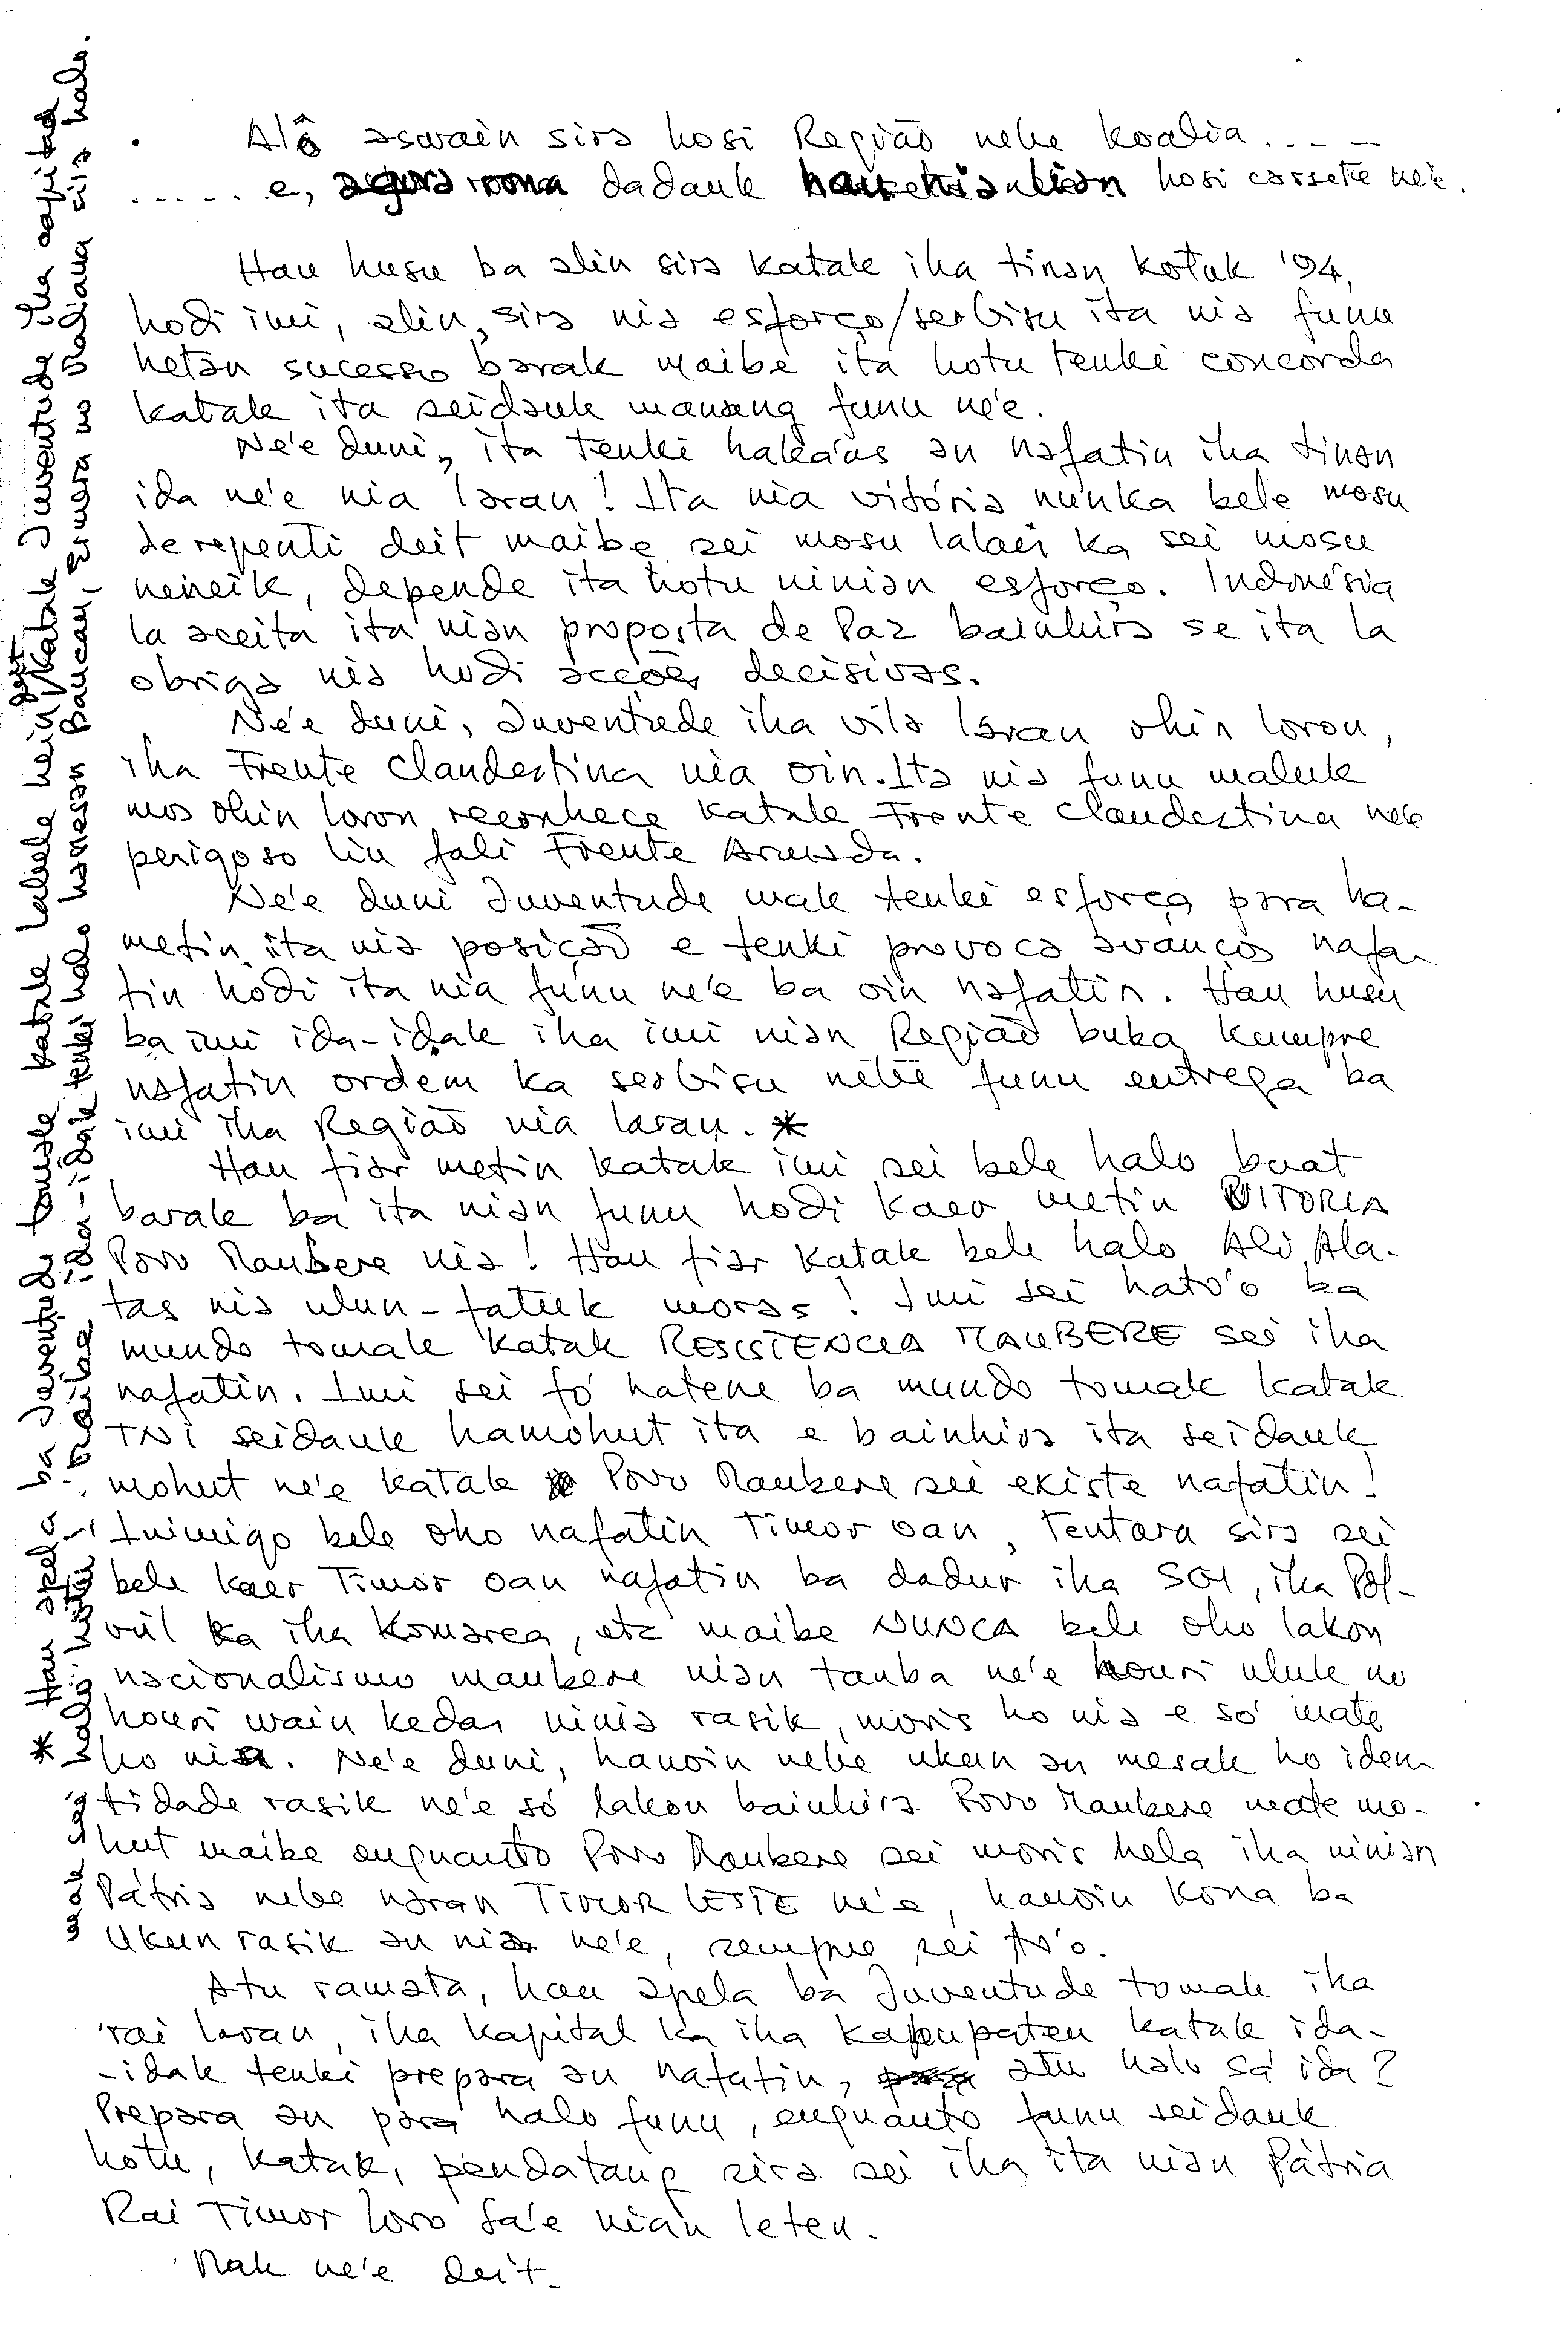 Alô aswain sira hosi Região nebe koalia.....
...... e, agora rona dadauk hau nia lian hosi cassete ne'e.
Hau husu ba alin sira katak iha tinan kotuk '94,
hodi imi, alin, sira nia esforço/serbisu ita nia funu
hetan sucesso barak maibé ita hotu tenki concorda
katak ita seidauk manang funu ne'e.
Ne'e duni, ita tenki haka'as an nafatin iha tinan
ida ne'e nia laran! Ita nia vitória nunka bele mosu
derepenti deit maibe sei mosu lalais ka sei mosu
neineik, depende ita hotu ninian esforço. Indonésia
la aceita ita nian proposta de Paz bainhira se ita la
obriga nia hodi acções decisivas.
Ne'e duni, Juventude iha vila laran ohin loron,
iha Frente Clandestina nia oin. Ita nia funu maluk
mos ohin loron reconhece katak Frente Clandestina ne'e
perigoso liu fali Frente Armada.
Ne'e duni Juventude mak tenki esforça para ha-
metin ita nia posição e tenki provoca avanços nafa-
tin hodi ita nia funu ne'e ba oin nafatin. Hau husu
ba imi ida-idak iha imi nian Região buka kumpre
nafatin ordem ka serbisu nebé funu entrega ba
imi iha Região nia laran. *
Hau fiar metin katak imi sei bele halo buat
barak ba ita nian funu hodi kaer metin VITORIA
Povo Maubere nia! Hau fiar katak bele halo Ali Ala-
tas nia ulun-fatuk moras! Imi sei hato'o ba
mundo tomak katak RESISTENCIA MAUBERE sei iha
nafatin. Imi sei fó hatene ba mundo tomak katak
TNI seidauk hamohut ita e bainhira ita seidauk
mohut ne'e katak Povo Maubere sei existe nafatin!
Inimigo bele oho nafatin Timor oan, Tentara sira sei
bele kaer Timor oan nafatin ba dadur iha SGI, iha Pol-
wil ka iha Komarca, etc maibe NUNCA bele oho lakon
nacionalismo maubere nian tanba ne'e houri uluk no
houri wain kedas ninia rasik, moris ho nia e só mate
ho nia. Ne'e duni, hanoin nebe ukun an mesak ho iden-
tidade rasik ne'e só lakon bainhira Povo Maubere mate mo-
hut maibe enquanto Povo Maubere sei moris hela iha ninian
Pátria nebe naran TIMOR LESTE ne'e, hanoin kona ba
Ukun rasik an nian ne'e, sempre sei to'o.
Atu ramata, hau apela ba Juventude tomak iha
rai laran, iha kapital ka iha kabupaten katak ida-
-idak tenki prepara an nafatin, atu halo sá ida?
Prepara an para halo funu, enquanto funu seidauk
hotu, katak, pendatang sira sei iha ita nian Pátria
Rai Timor loro sa'e nian leten.
Mak ne'e deit.
* Hau apela ba Juventude tomak katak labele hein deit katak Juventude iha capital
mak halo maibe ida-idak tenki halo hanesan Baucau, Ermera no Maliana sira halo.